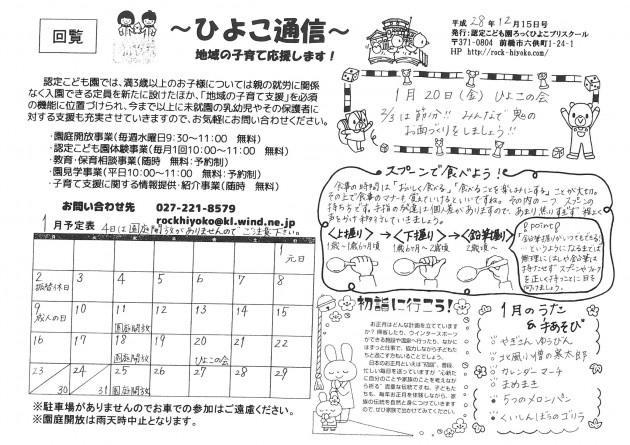 回覧
～ひよこ通信～
地域の子育て応援します！
平成28年12月15日号
発行：認定こども園ろっくひよこプリスクール
〒371-0804 前橋市六供町1-24-1
HP http://rock-hiyoko.com/
認定こども園では、満3歳以上のお子様については親の就労に関係
なく入園できる定員を新たに設けたほか、「地域の子育て支援」を必須
の機能に位置づけられ、今まで以上に未就園の乳幼児やその保護者に
対する支援も充実させていきますので、お気軽にお問い合わせください。
・園庭開放事業（毎週水曜日9:30～11:00 無料）
・認定こども園体験事業（毎月1回10:00～11:00 無料）
・教育・保育相談事業（随時 無料：予約制）
・園見学事業（平日10:00～11:00 無料：予約制）
・子育て支援に関する情報提供・紹介事業（随時 無料）
お問い合わせ先 027-221-8579
rockhiyoko@kl.wind.ne.jp
1月予定表 4日は園庭開放がありませんのでご注意下さい。
日 月 火 水 木 金 土
1 元日
2 振替休日 3 4 5 6 7 8
9 成人の日 10 11 園庭開放 12 13 14 15
16 17 18 園庭開放 19 20 ひよこの会 21 22
23 24 25 園庭開放 26 27 28 29
30 31
※駐車場がありませんのでお車での参加はご遠慮ください。
※園庭開放は雨天時中止となります。
1月20日（金）ひよこの会
2/3は節分!! みんなで鬼の
お面づくりをしましょう!!
スプーンで食べよう！
食事の時間は「おいしく食べる」「食べることを楽しみにする」ことが大切。
その上で食事のマナーも育てていけるといいですね。その内の一つ スプーンの
持ち方です。手指の発達には個人差がありますので、あまり焦りすぎず 程よく
声をかけ続けをしていきましょう。
<上握り> → <下握り> → <鉛筆握り>
1歳～1歳6か月頃 1歳6か月～2歳頃 2歳～
point
鉛筆握りがいつでもできる!
…というようになるまでは
無理にはしや鉛筆は
持たせず スプーンやフォークを
正しく持つことに目を
向けましょう。
初詣に行こう！
お正月はどんな計画を立てています
か？ 帰省したり、ウインタースポーツ
ができる施設や国家へ行ったり、なかに
はずっと仕事で、協力しながら子どもた
ちと過ごす方もいることでしょう。
日本のお正月といえば“初詣”。普段、
忙しい毎日を送っていますが“心新た
に自分のことや家族のことを考えながら
祈る”貴重な伝統ですね。子どもたち
も、毎年お正月を体験しながら、家
族の伝統を自然と身につけていきますの
で、ぜひ家族で出かけてみてください。
1月のうた
&手あそび
・やぎさん ゆうびん
・北風小僧の寒太郎
・カレンダーマーチ
・まめまき
・5つのメロンパン
・くいしんぼうのゴリラ